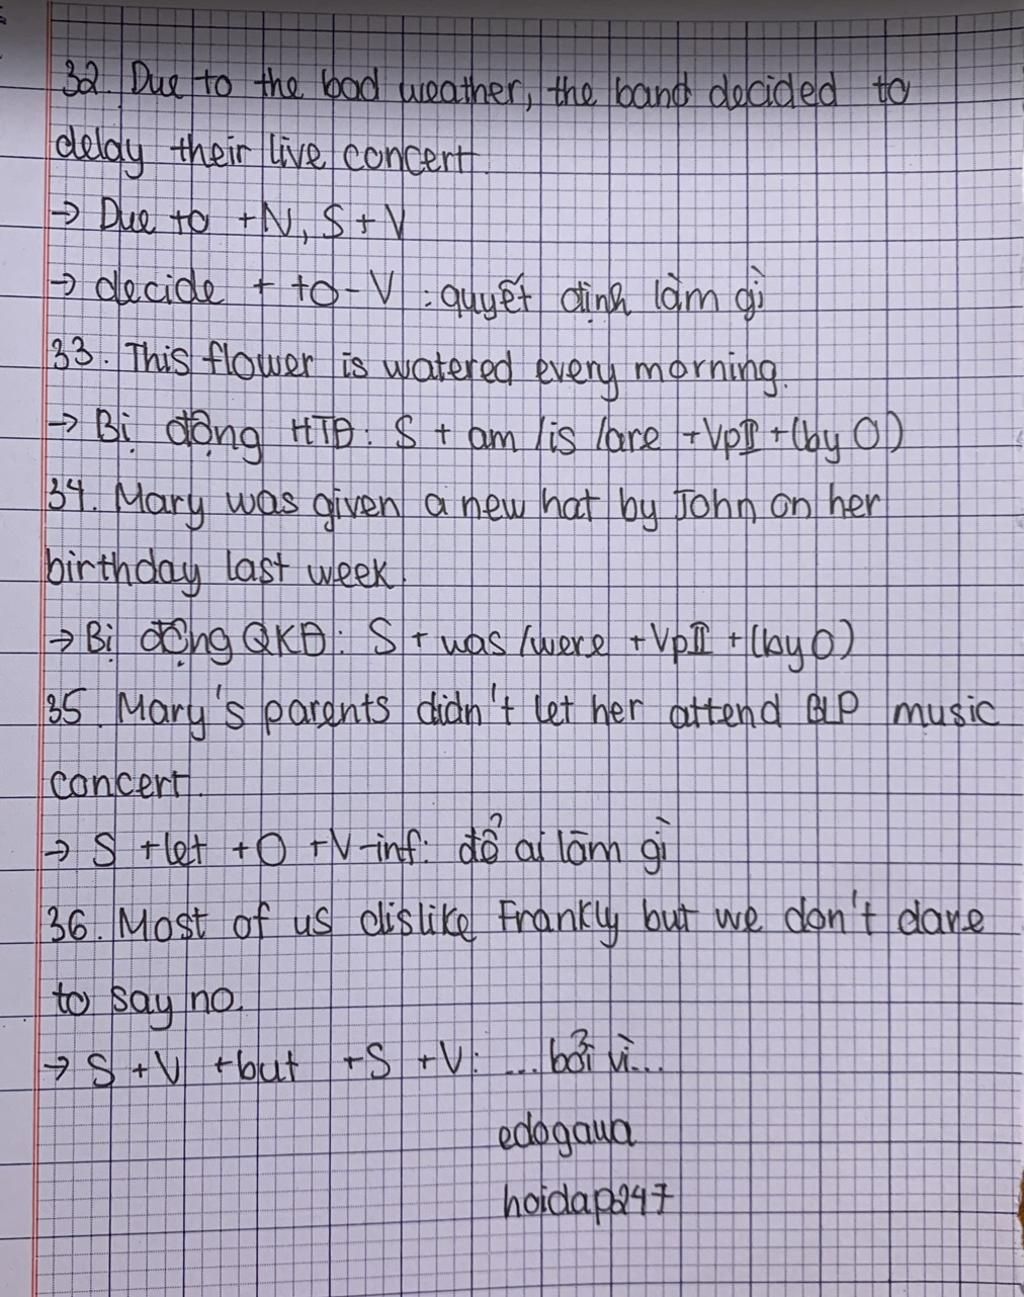 32. Due to the bad weather, the band decided to
delay their live concert.
→ Due to +N, S + V
→ decide + to-V : quyết định làm gì
33. This flower is watered every morning.
→ Bị động HTĐ: S + am /is /are +VpII +(by O)
34. Mary was given a new hat by John on her
birthday last week.
→ Bị động QKĐ: S + was /were +VpII +(by O)
35. Mary's parents didn't let her attend BLP music
concert.
→ S +let +O +V-inf: để ai làm gì
36. Most of us dislike Frankly but we don't dare
to say no.
→ S +V +but +S +V: ... bởi vì...
edogawa
hoidap247